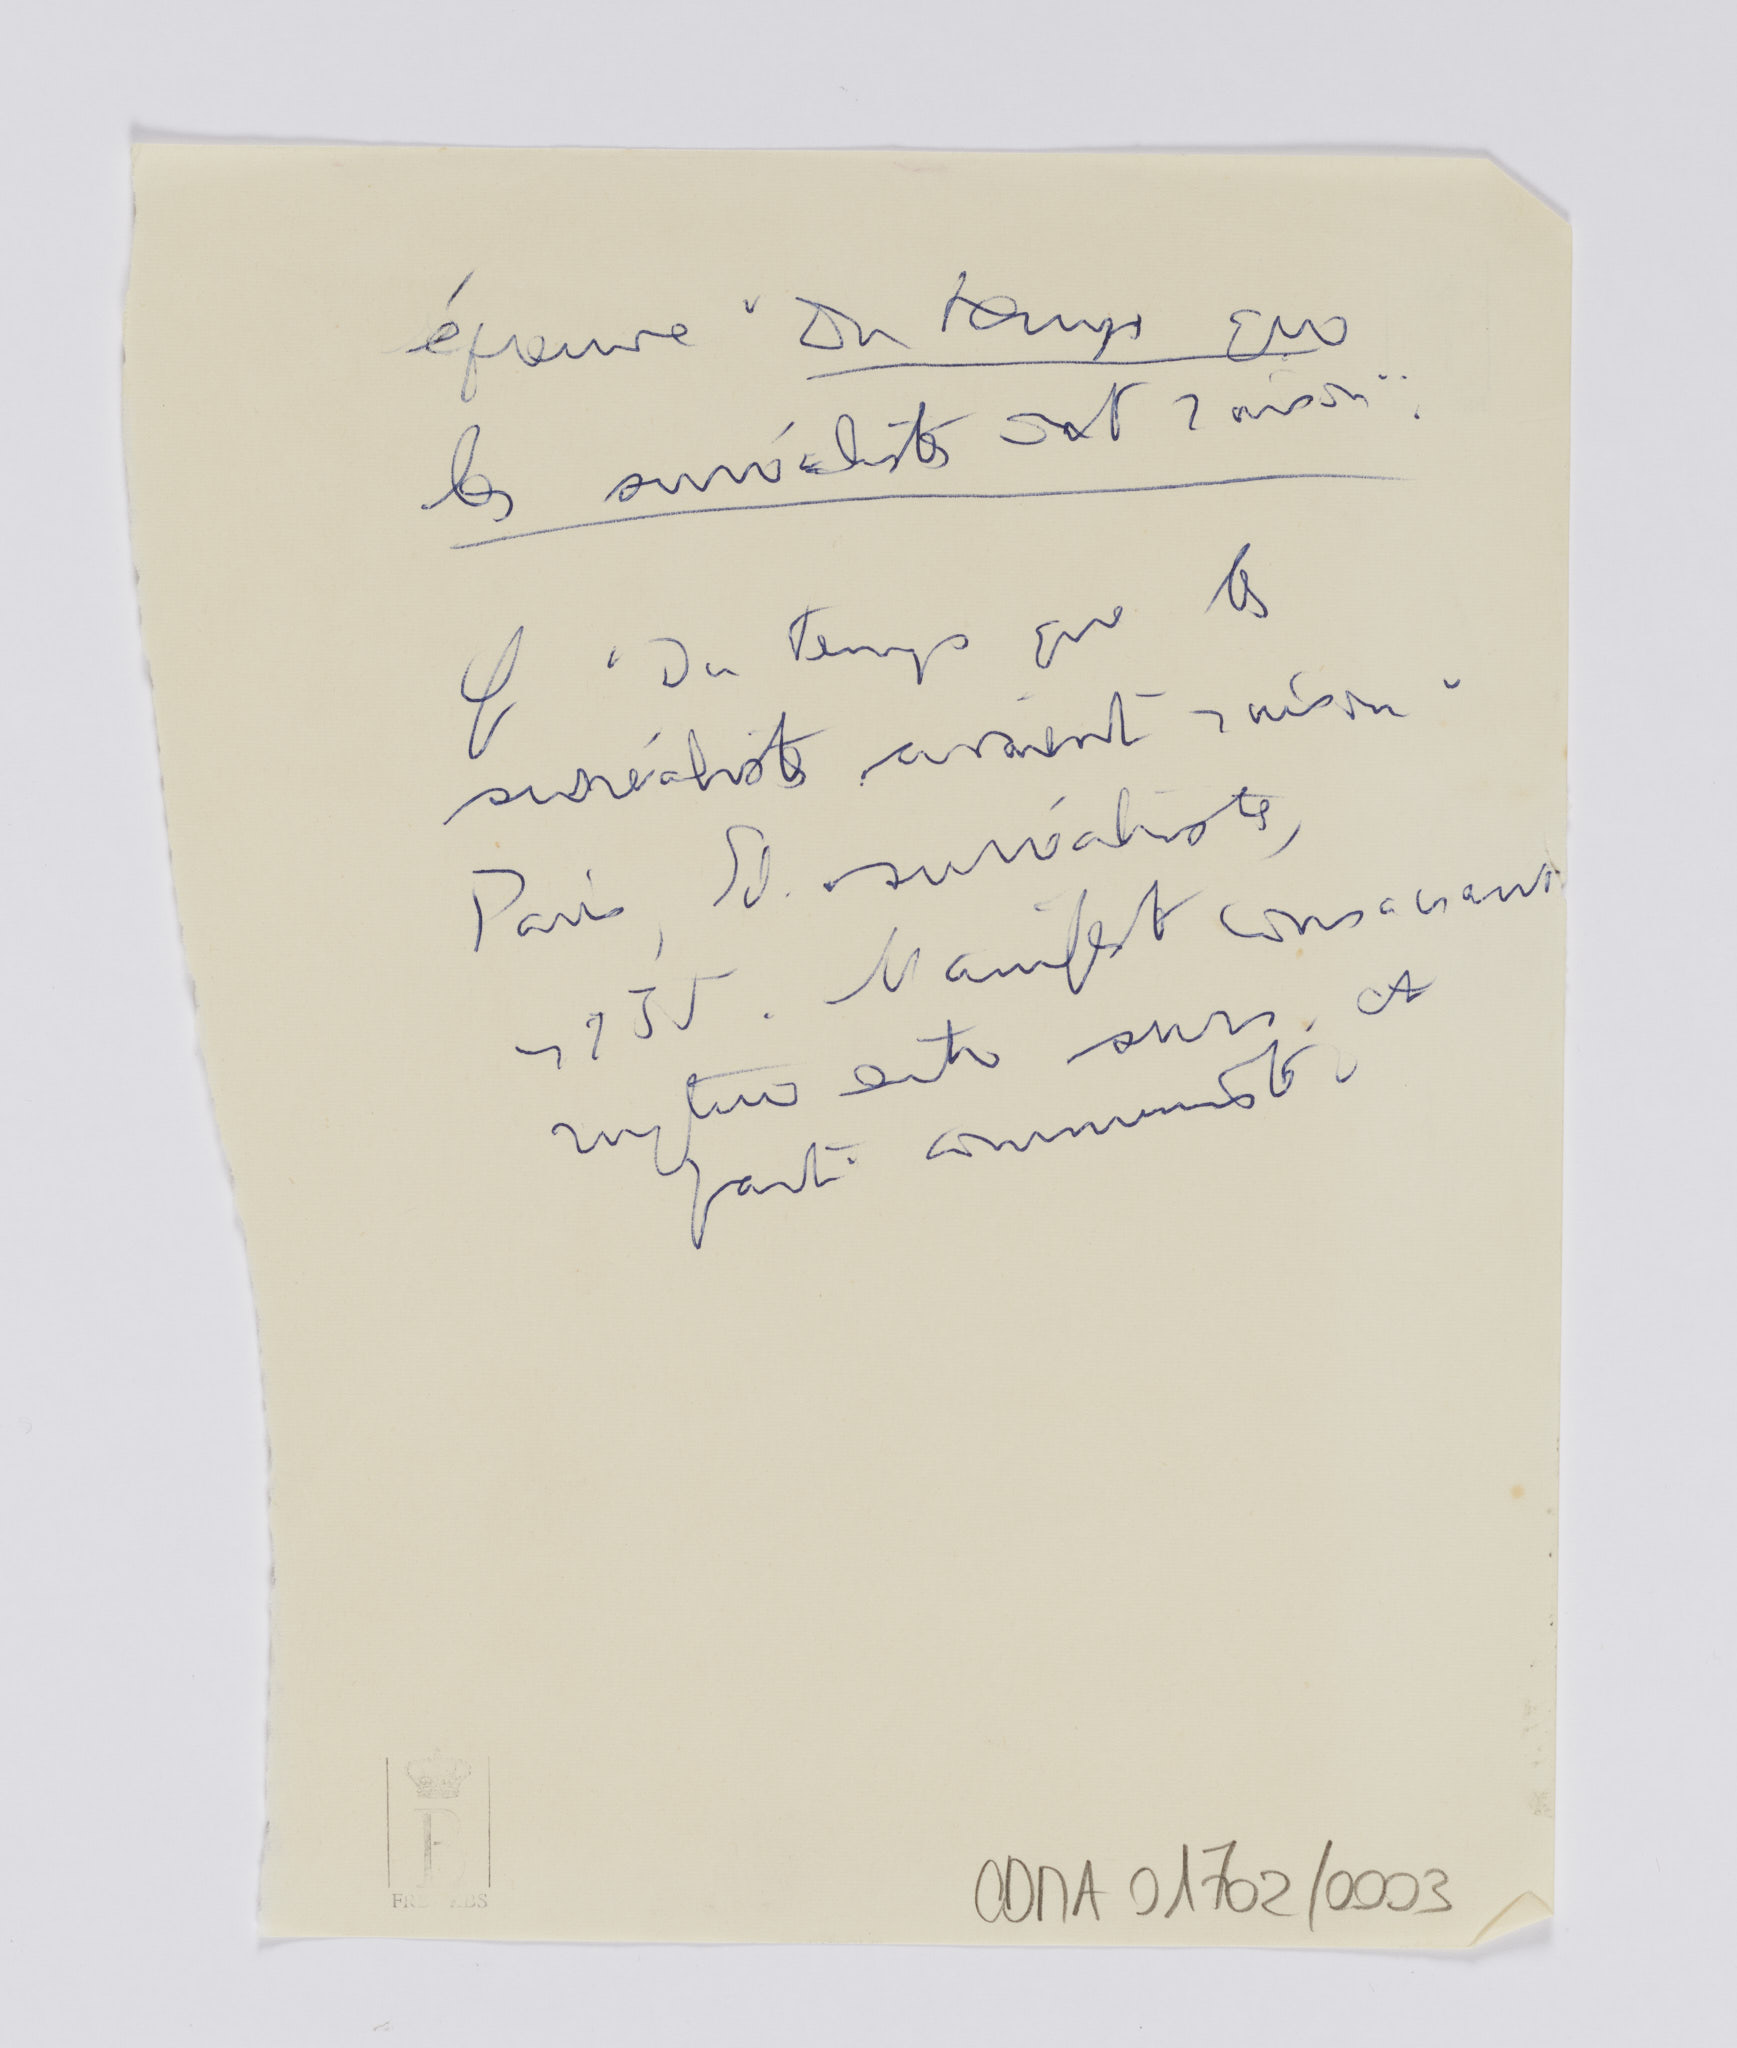 épreuve "Du temps que
les surréalistes ont raison".
Cf "Du temps que les
surréalistes avaient raison"
Paris, Ed. surréalistes,
1935. Manifeste consacrant
rupture entre surr. et
parti communiste
CDMA 01702/0003